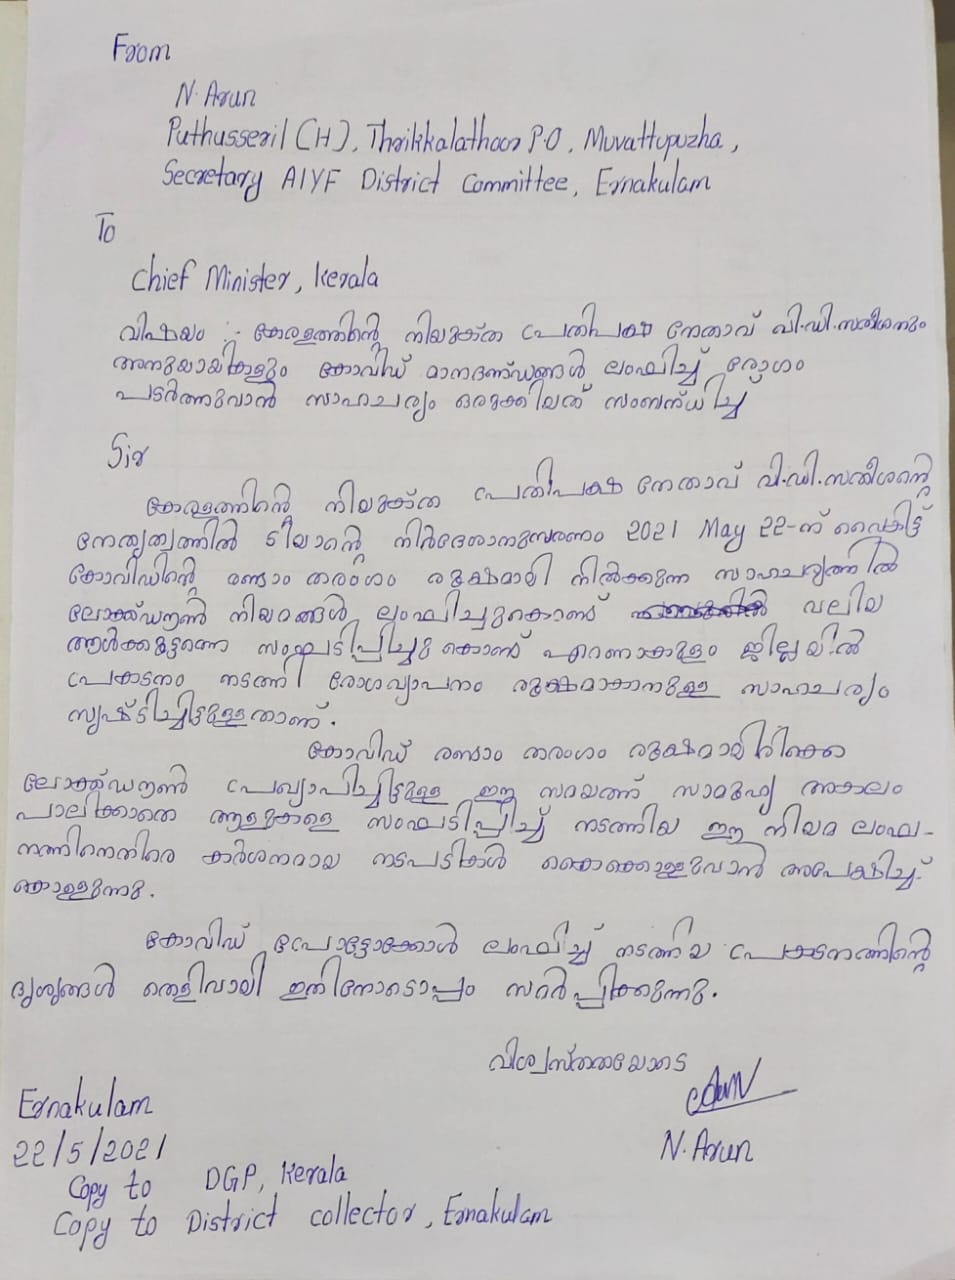 From
N. Arun
Puthusseril (H), Thrikkalathoor P.O, Muvattupuzha,
Secretary AIYF District Committee, Ernakulam
To
Chief Minister, Kerala
വിഷയം :- കേരളത്തിന്റെ നിയുക്ത പ്രതിപക്ഷ നേതാവ് വി.ഡി.സതീശനും
അനുയായികളും കോവിഡ് മാനദണ്ഡങ്ങൾ ലംഘിച്ച് രോഗം
പടർത്തുവാൻ സാഹചര്യം ഒരുക്കിയത് സംബന്ധിച്ച്
Sir
കേരളത്തിന്റെ നിയുക്ത പ്രതിപക്ഷ നേതാവ് വി.ഡി.സതീശന്റെ
നേതൃത്വത്തിൽ ടിയാന്റെ നിർദേശാനുസരണം 2021 May 22-ന് വൈകിട്ട്
കോവിഡിന്റെ രണ്ടാം തരംഗം രൂക്ഷമായി നിൽക്കുന്ന സാഹചര്യത്തിൽ
ലോക്ക്ഡൗൺ നിയമങ്ങൾ ലംഘിച്ചുകൊണ്ട് വലിയ
ആൾക്കൂട്ടത്തെ സംഘടിപ്പിച്ചു കൊണ്ട് എറണാകുളം ജില്ലയിൽ
പ്രകടനം നടത്തി രോഗവ്യാപനം രൂക്ഷമാകാനുള്ള സാഹചര്യം
സൃഷ്ടിച്ചിട്ടുള്ളതാണ്.
കോവിഡ് രണ്ടാം തരംഗം രൂക്ഷമായിരിക്കെ
ലോക്ക്ഡൗൺ പ്രഖ്യാപിച്ചിട്ടുള്ള ഈ സമയത്ത് സാമൂഹ്യ അകലം
പാലിക്കാതെ ആളുകളെ സംഘടിപ്പിച്ച് നടത്തിയ ഈ നിയമ ലംഘ-
നത്തിനെതിരെ കർശനമായ നടപടികൾ കൈക്കൊള്ളുവാൻ അപേക്ഷിച്ചു
കൊള്ളുന്നു.
കോവിഡ് പ്രോട്ടോക്കോൾ ലംഘിച്ച് നടത്തിയ പ്രകടനത്തിന്റെ
ദൃശ്യങ്ങൾ തെളിവായി ഇതിനോടൊപ്പം സമർപ്പിക്കുന്നു.
വിശ്വസ്തതയോടെ
Arun
Ernakulam
N. Arun
22/5/2021
Copy to DGP, Kerala
Copy to District collector, Ernakulam